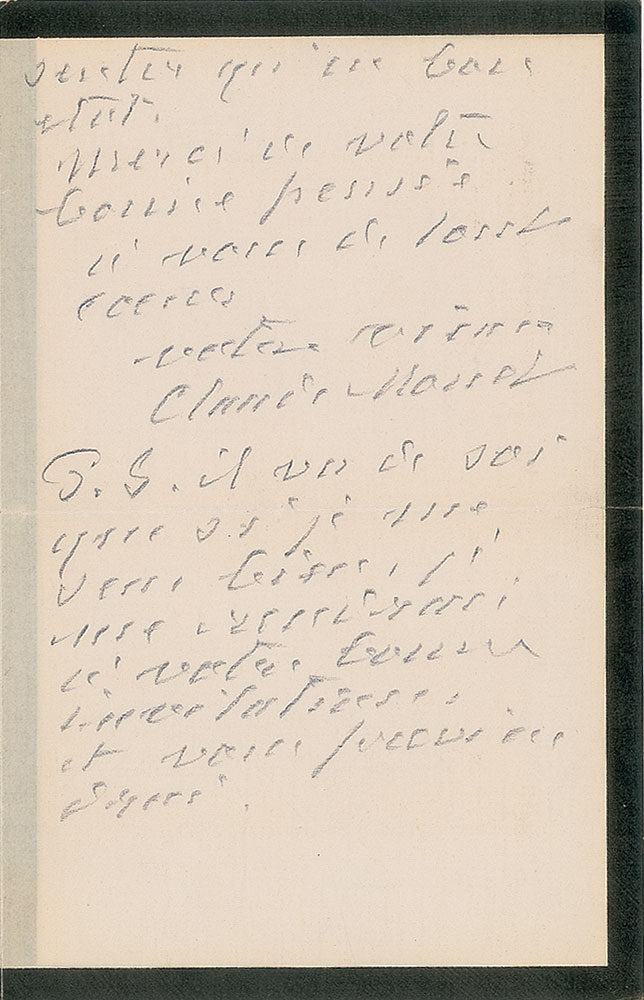 sentir qu'en bon
état.
Merci de votre
bonne pensée
à vous de tout
cœur
votre vieux
Claude Monet
P.S. il va de soi
que si je me
sens bien, je
me rendrai
à votre bonne
invitation,
et vous préviendrai